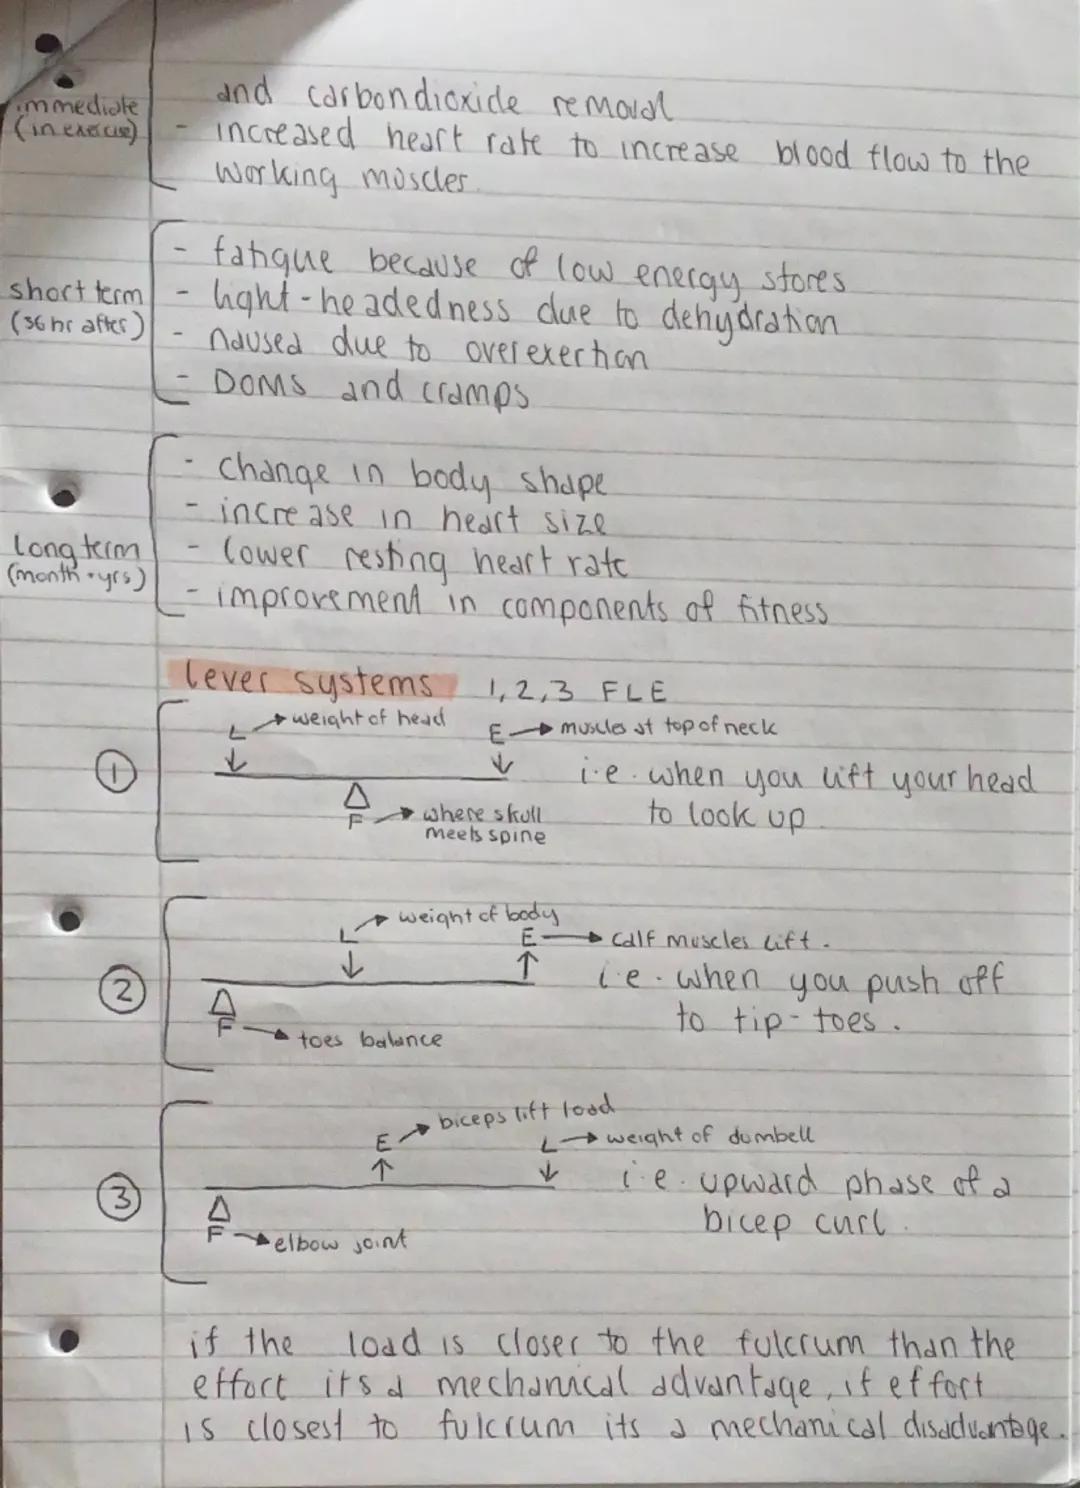 and carbondioxide removal
immediate
(in exercise)
- increased heart rate to increase blood flow to the
working muscles.
- fatigue because of low energy stores
short term
(36 hr after)
- light-headedness due to dehydration
- nausea due to overexertion
- DOMS and cramps
- change in body shape
- increase in heart size
long term
(month + yrs)
- lower resting heart rate
- improvement in components of fitness
lever systems 1,2,3 FLE
L → weight of head
E → muscles at top of neck
1
i.e. when you lift your head
to look up.
F → where skull
meets spine
L → weight of body
E → calf muscles lift.
2
i.e. when you push off
to tip-toes.
F → toes balance
E → biceps lift load
L → weight of dumbell
3
i.e. upward phase of a
bicep curl.
F → elbow joint
if the load is closer to the fulcrum than the
effort its a mechanical advantage, if effort
is closest to fulcrum its a mechanical disadvantage.